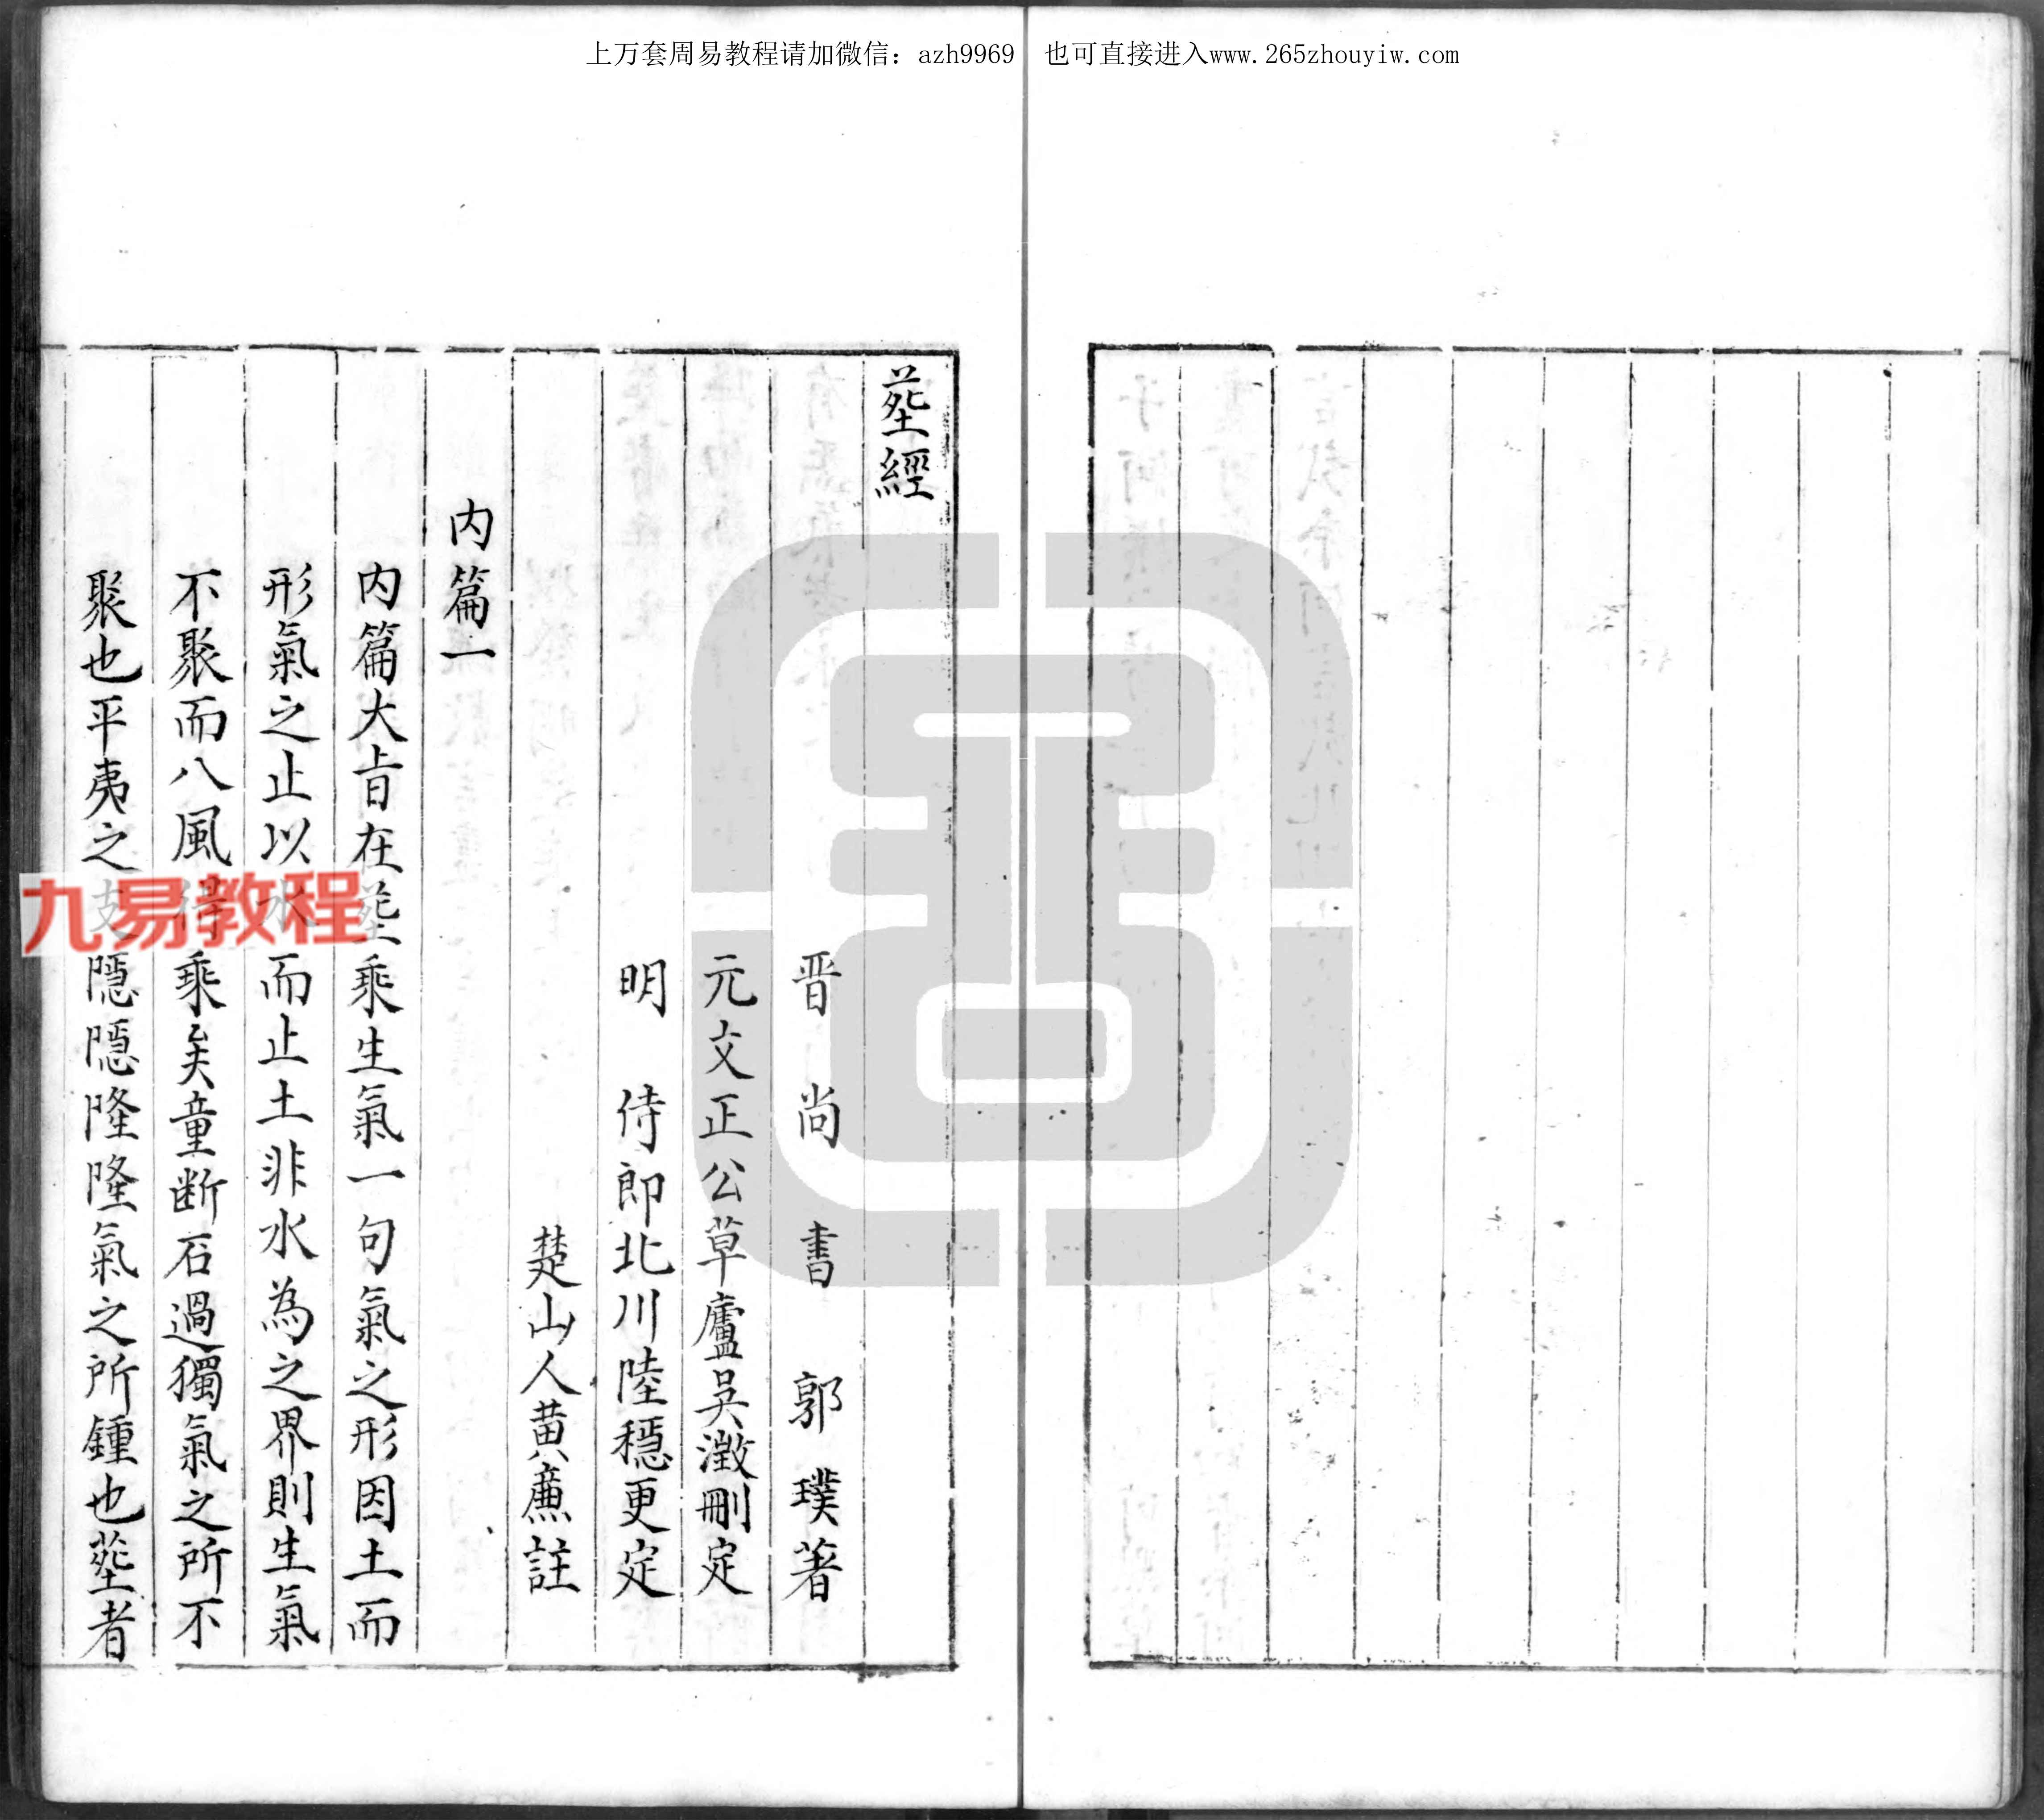 上万套周易教程请加微信：azh9969 也可直接进入www.265zhouyiw.com
塟經
晋尚書郭璞著
元文正公草廬吳澂刪定
明 侍郎北川陸穩更定
楚山人黄㢘註
内篇一
内篇大旨在塟乘生氣一句氣之形因土而
形氣之止以水而止土非水為之界則生氣
不聚而八風得乘矣童断石過獨氣之所不
聚也平夷之支隠隠隆隆氣之所鍾也塟者
九易教程